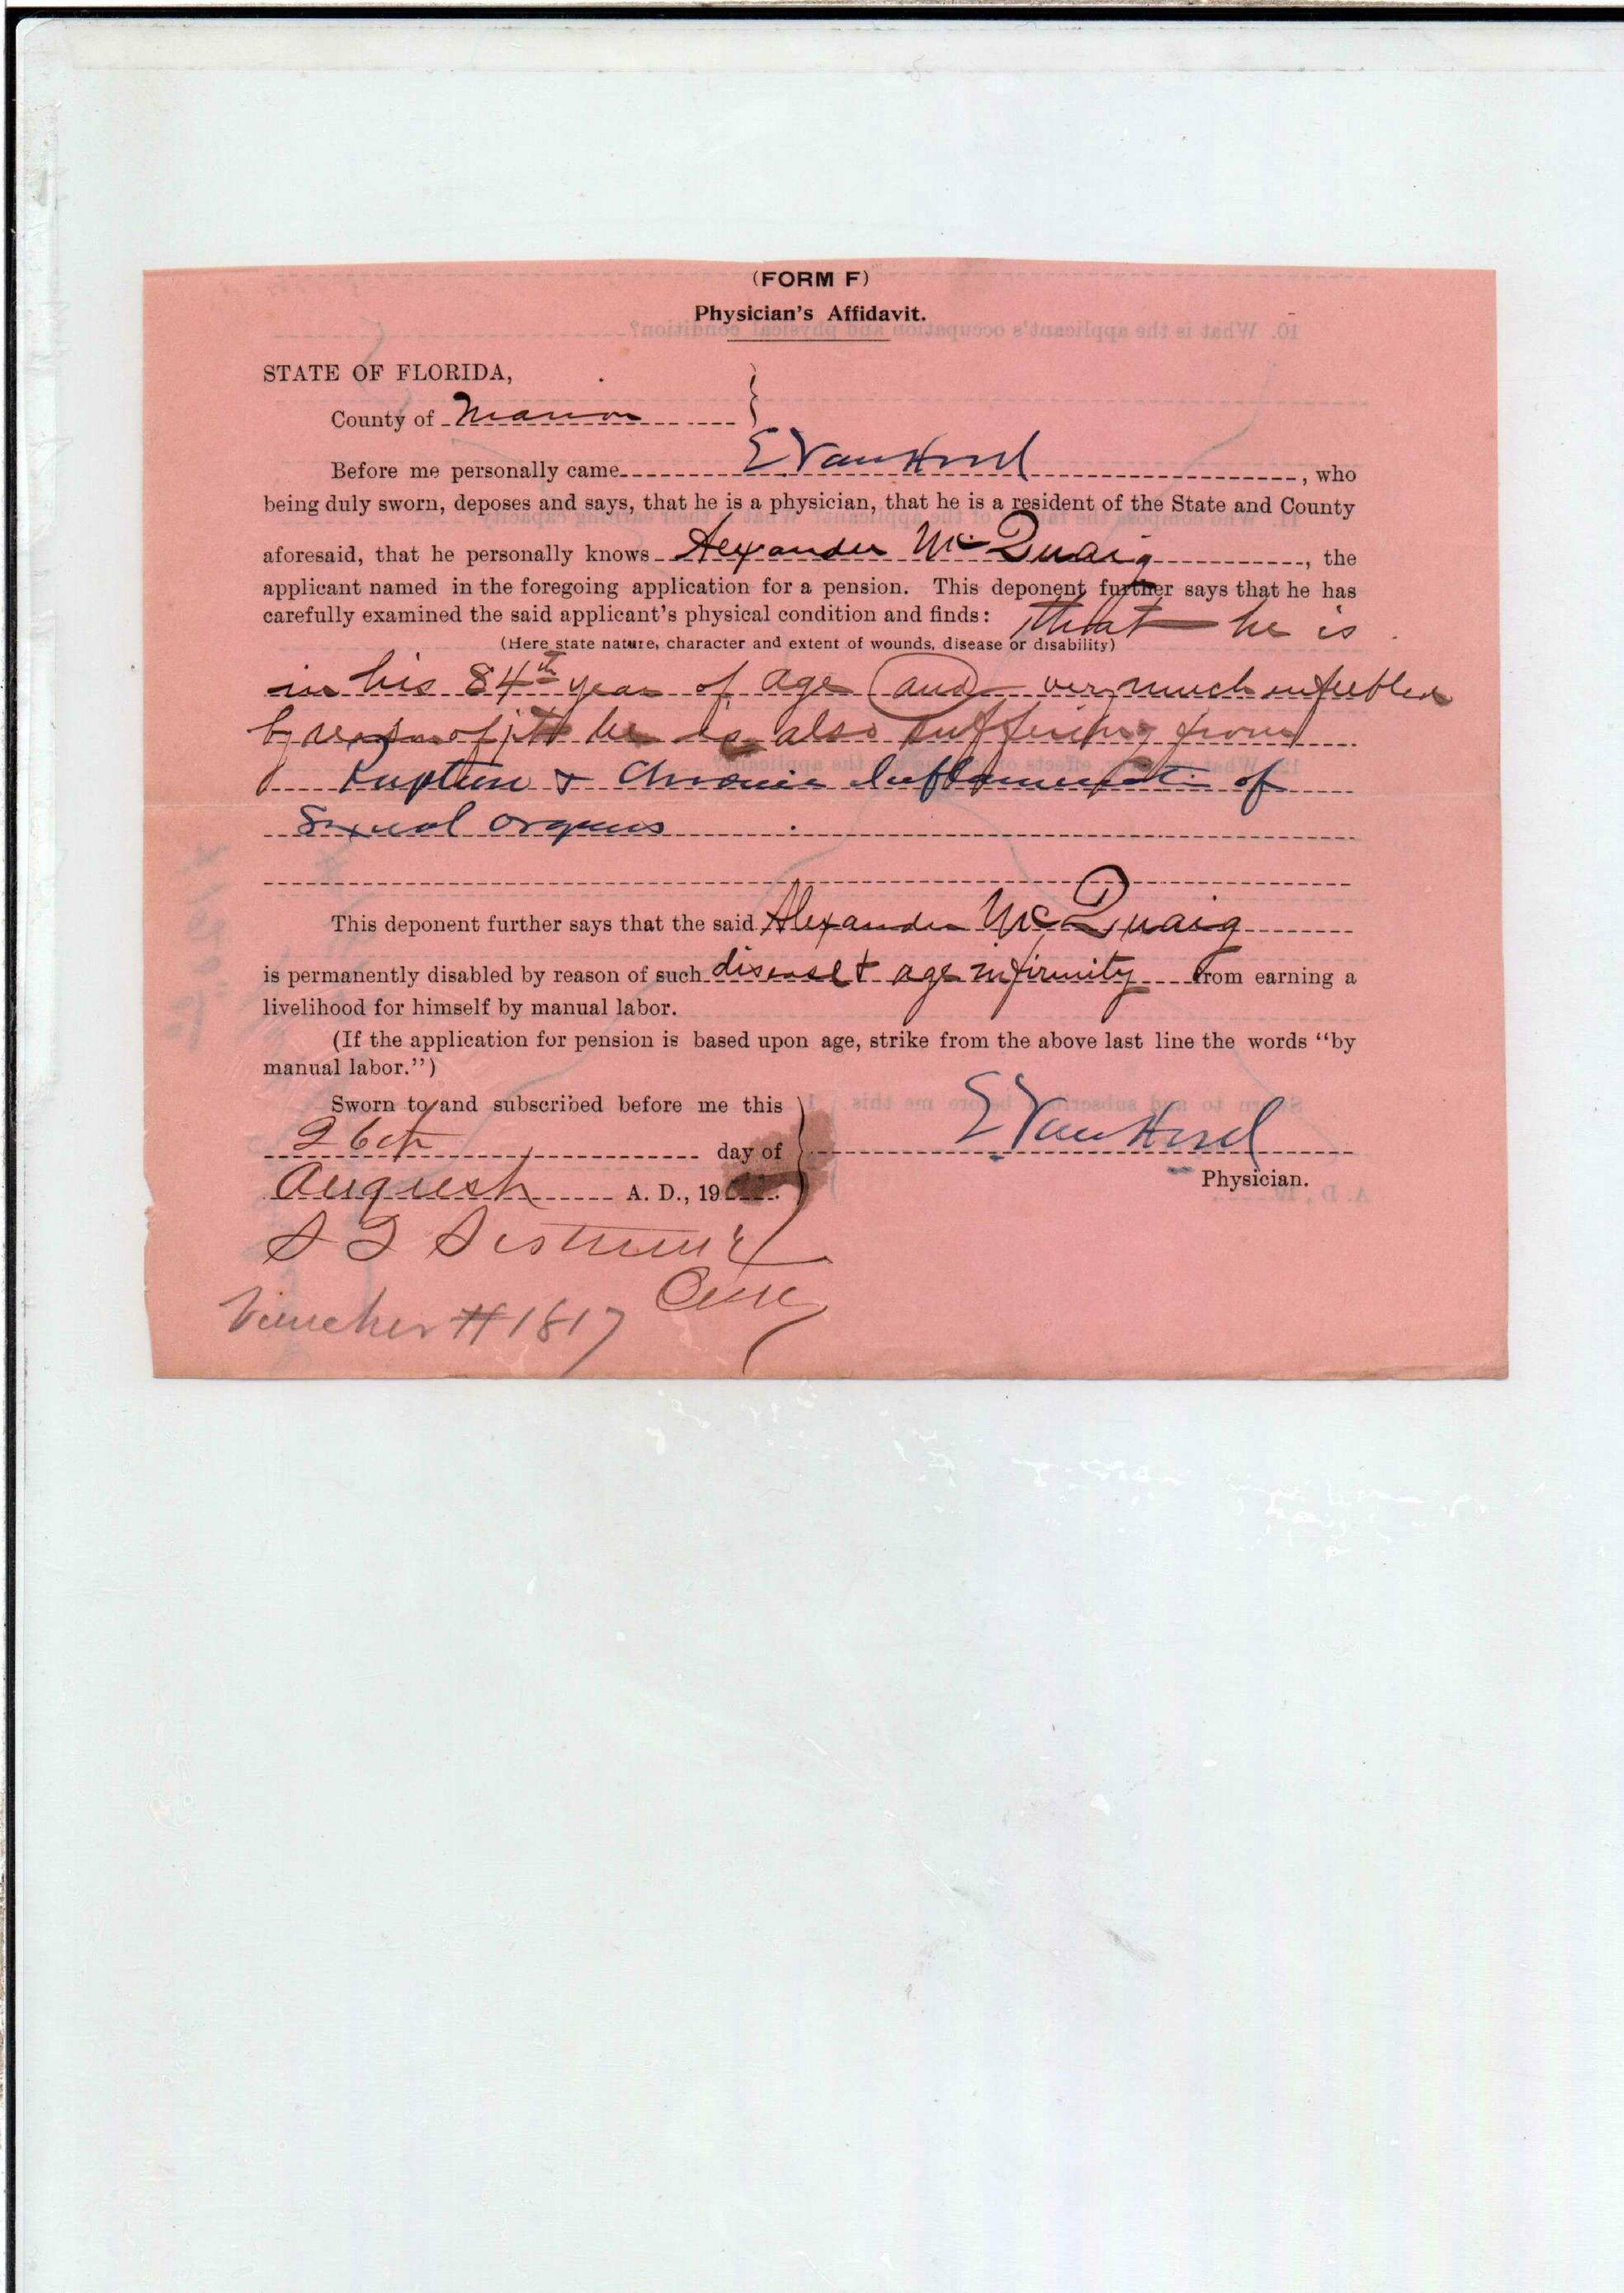 (FORM F)
Physician's Affidavit.
STATE OF FLORIDA,
County of Marion
Before me personally came E Van Hood, who
being duly sworn, deposes and says, that he is a physician, that he is a resident of the State and County
aforesaid, that he personally knows Alexander McQuaig, the
applicant named in the foregoing application for a pension. This deponent further says that he has
carefully examined the said applicant's physical condition and finds: that he is
(Here state nature, character and extent of wounds, disease or disability)
in his 84th year of age and very much enfeebled
by reason of it he is also suffering from
Rupture & Chronic Inflammation of
Sexual Organs
This deponent further says that the said Alexander McQuaig
is permanently disabled by reason of such disease & age infirmity from earning a
livelihood for himself by manual labor.
(If the application for pension is based upon age, strike from the above last line the words "by
manual labor.")
Sworn to and subscribed before me this
26th day of
August A. D., 19
E Van Hood
Physician.
S T Sistrunk
Clerk
Voucher #1817